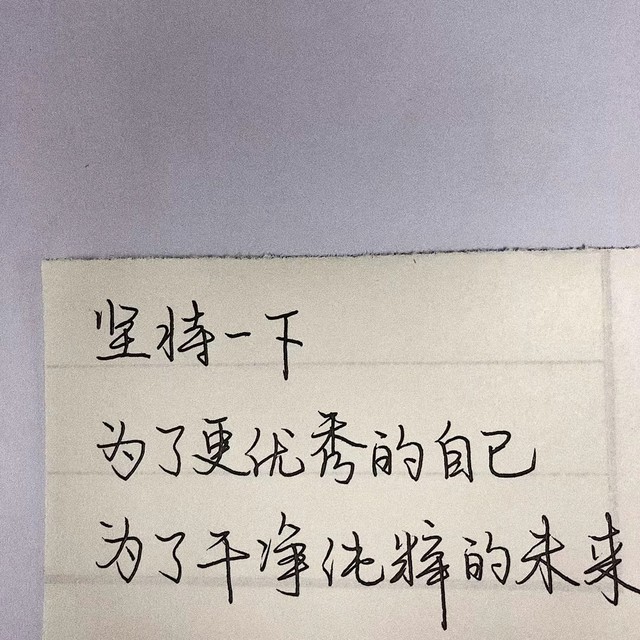 坚持一下
为了更优秀的自己
为了干净纯粹的未来